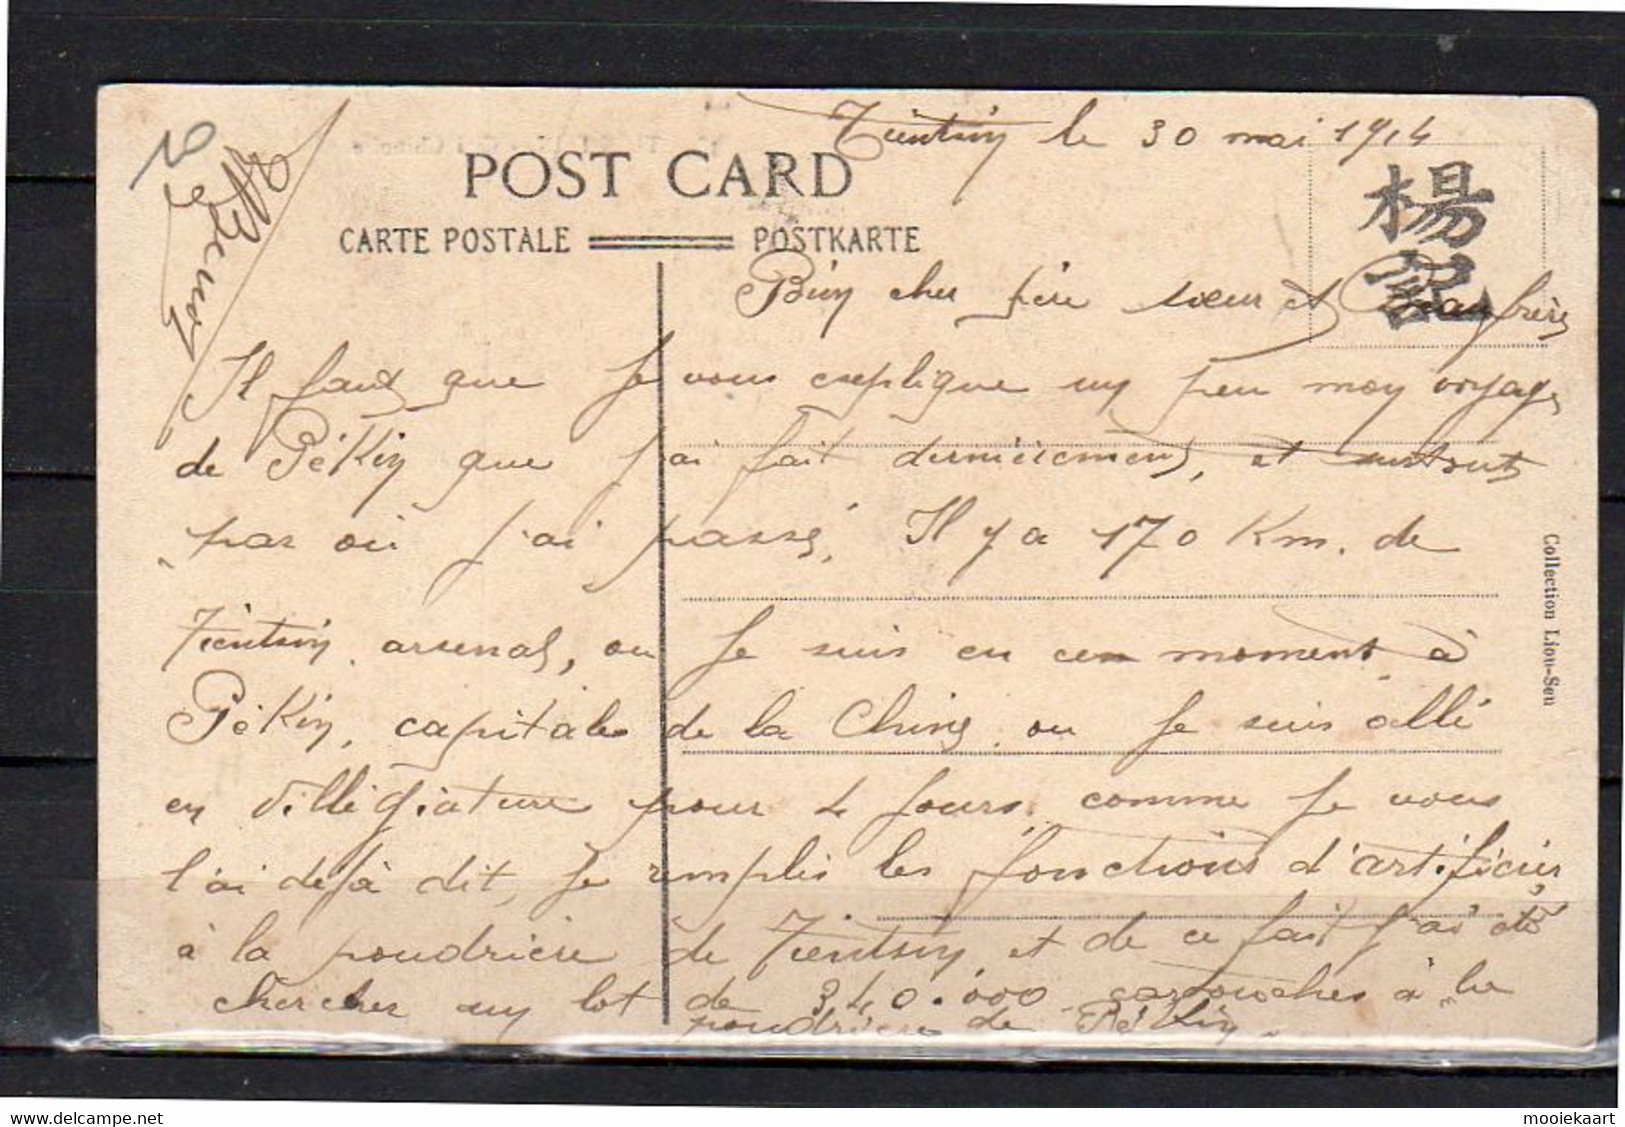 Tientsin le 30 mai 1914
POST CARD
CARTE POSTALE POSTKARTE
楊
記
Bien cher père sœur et frère
Il faut que je vous explique un peu mon voyage
de Pékin que j'ai fait dernièrement, et surtout
par où j'ai passé. Il y a 170 Km. de
Tientsin, arsenal, ou je suis en ce moment à
Pékin, capitale de la Chine, ou je suis allé
en villégiature pour 4 jours, comme je vous
l'ai déjà dit, je remplis les fonctions d'artificier
à la poudrière de Tientsin et de ce fait j'ai été
chercher un lot de 340.000 cartouches à la
poudrière de Pékin.
Collection Liou-Seu
delcampe.net mooiekaart